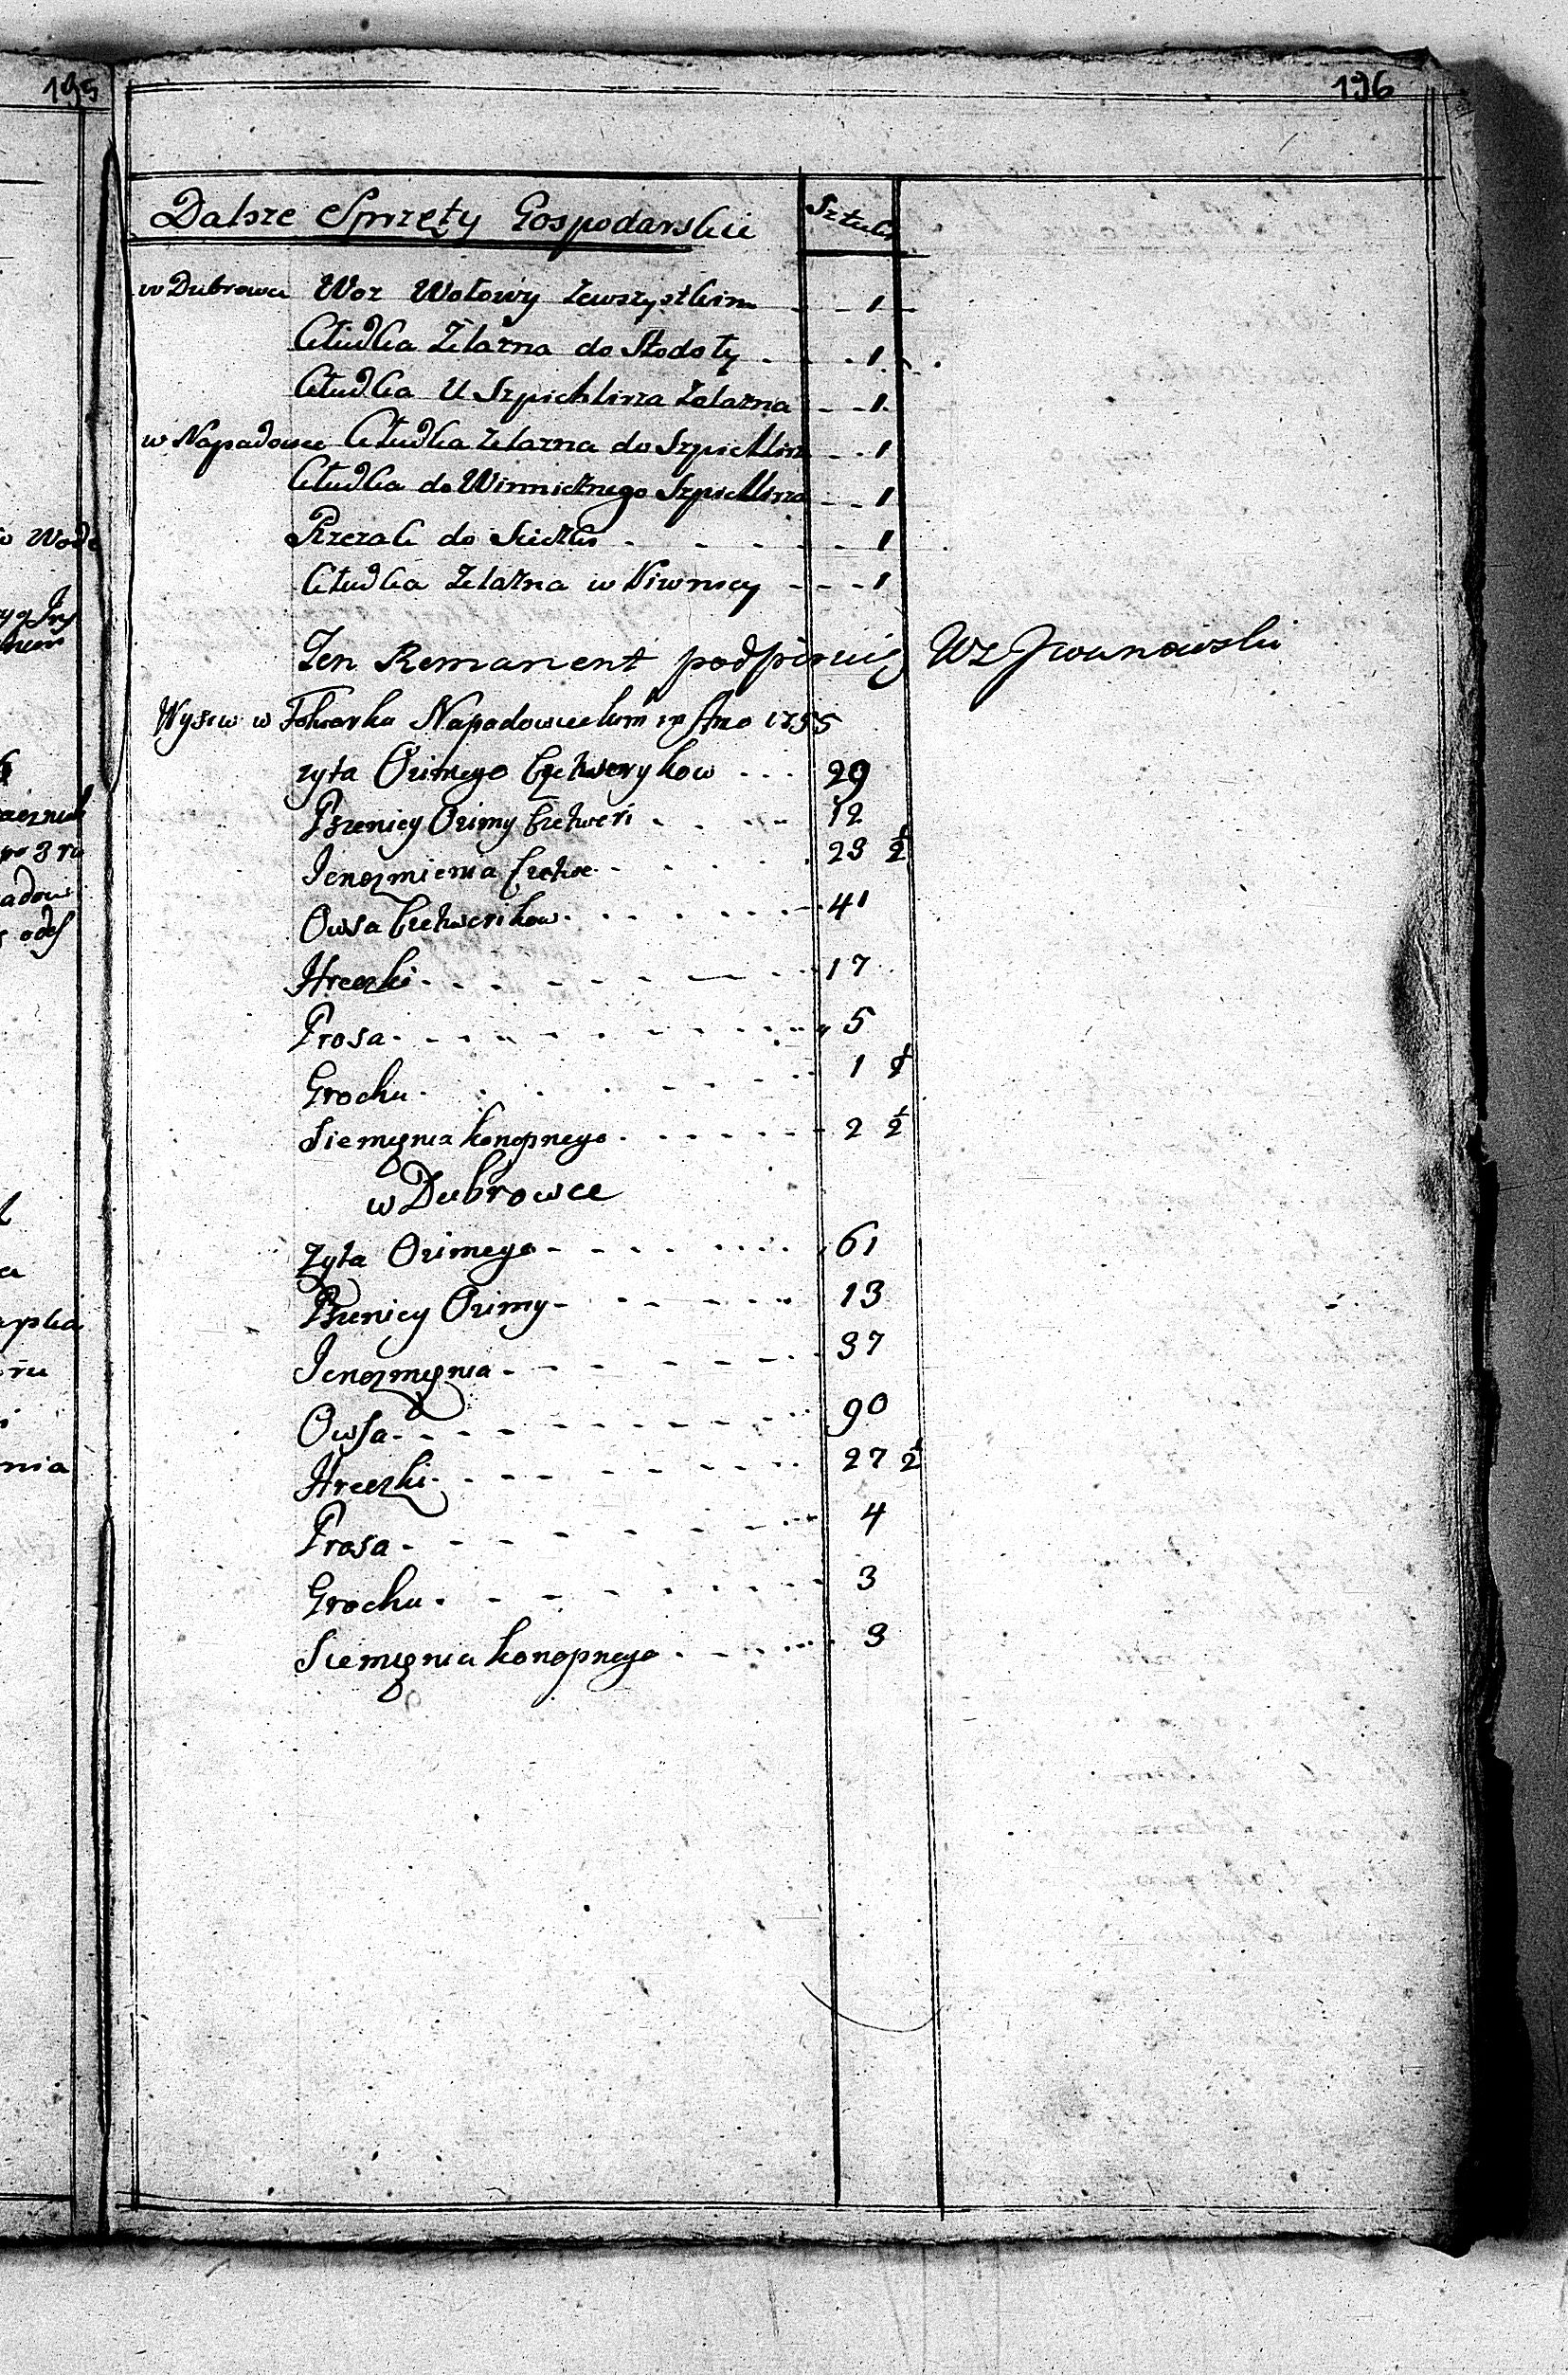 195
196
Dalsze Sprzęty Gospodarskie Sztuk
w Dubrowce Woz Wołowy zewszystkim 1
Kłudka Żelazna do Stodoły 1
Kłudka U Szpichlirza Zelazna 1
w Napadowce Kłudka zelazna do Szpichlirz 1
Kłudka do Winnicznego Szpichlirza 1
Rzezak do Sieczki 1
Kłudka Zelazna w Piwnicy 1
Ten Remanent podpisuię WZ Jwanowski
Wysiew w Folwarku Napadowieckim in Ano 1755
zyta Ozimego Czetwerykow 29
Pszenicy Ozimy Czetweri 12
Jenczmienia Czetwe 23 ½
Owsa Czetwerikow 41
Hreczki 17
Prosa 5
Grochu 1 ½
Siemięnia konopnego 2 ½
w Dubrowce
Zyta Ozimego 61
Pszenicy Ozimy 13
Jenczmięnia 37
Owsa 90
Hreczki 27 ½
Prosa 4
Grochu 3
Siemięnia konopnego 3